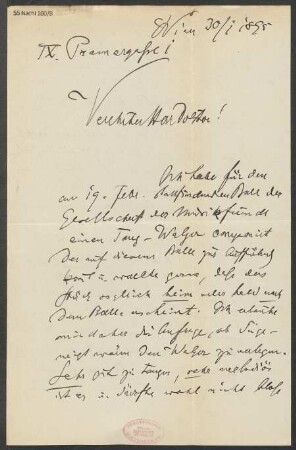 55 Nachl 100/B
Wien 30/I 1895
IX. Pramergasse
Verehrter Herr Doktor!
Ich habe für den
am 19. Febr. stattfindenden Ball der
Gesellschaft der Musikfreunde
einen Tanz-Walzer componirt
der auf diesem Balle zur Aufführung
kommt u. möchte gerne, daß das
Stück sogleich beim oder bald nach
dem Balle erscheint. Ich erlaube
mir daher die Anfrage, ob Sie ge-
neigt wären den Walzer zu verlegen.
Sehr gut zu tanzen, melodiös
ist er u. dürfte wohl nicht bloß